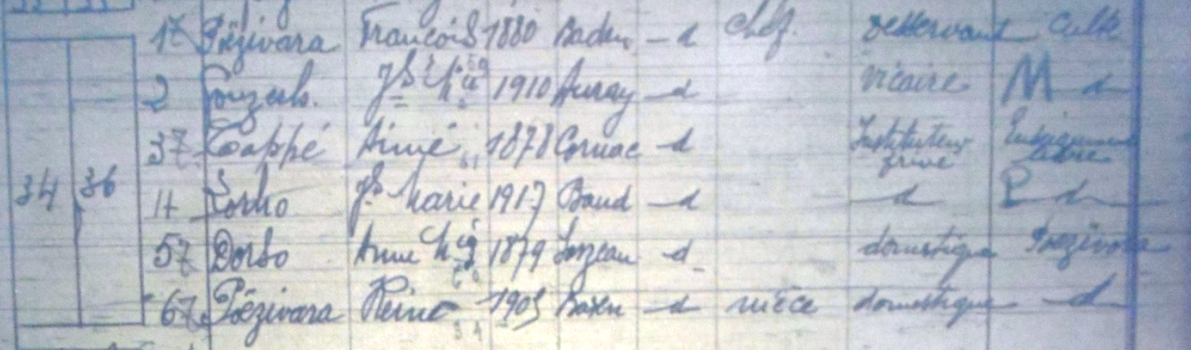 17 Pézivara François 1880 Baden d chef. desservant Culte
2 Jh 1910 Auray d vicaire M d
34 36 37 Cappé Aimé 1878 Carnac d Instituteur privé Enseignement libre
4 Lorho Jh Marie 1917 Baud d d P d
57 Dorso Anne 1879 d domestique Pézivara
67 Pézivara Reine 1905 Baden d nièce domestique d